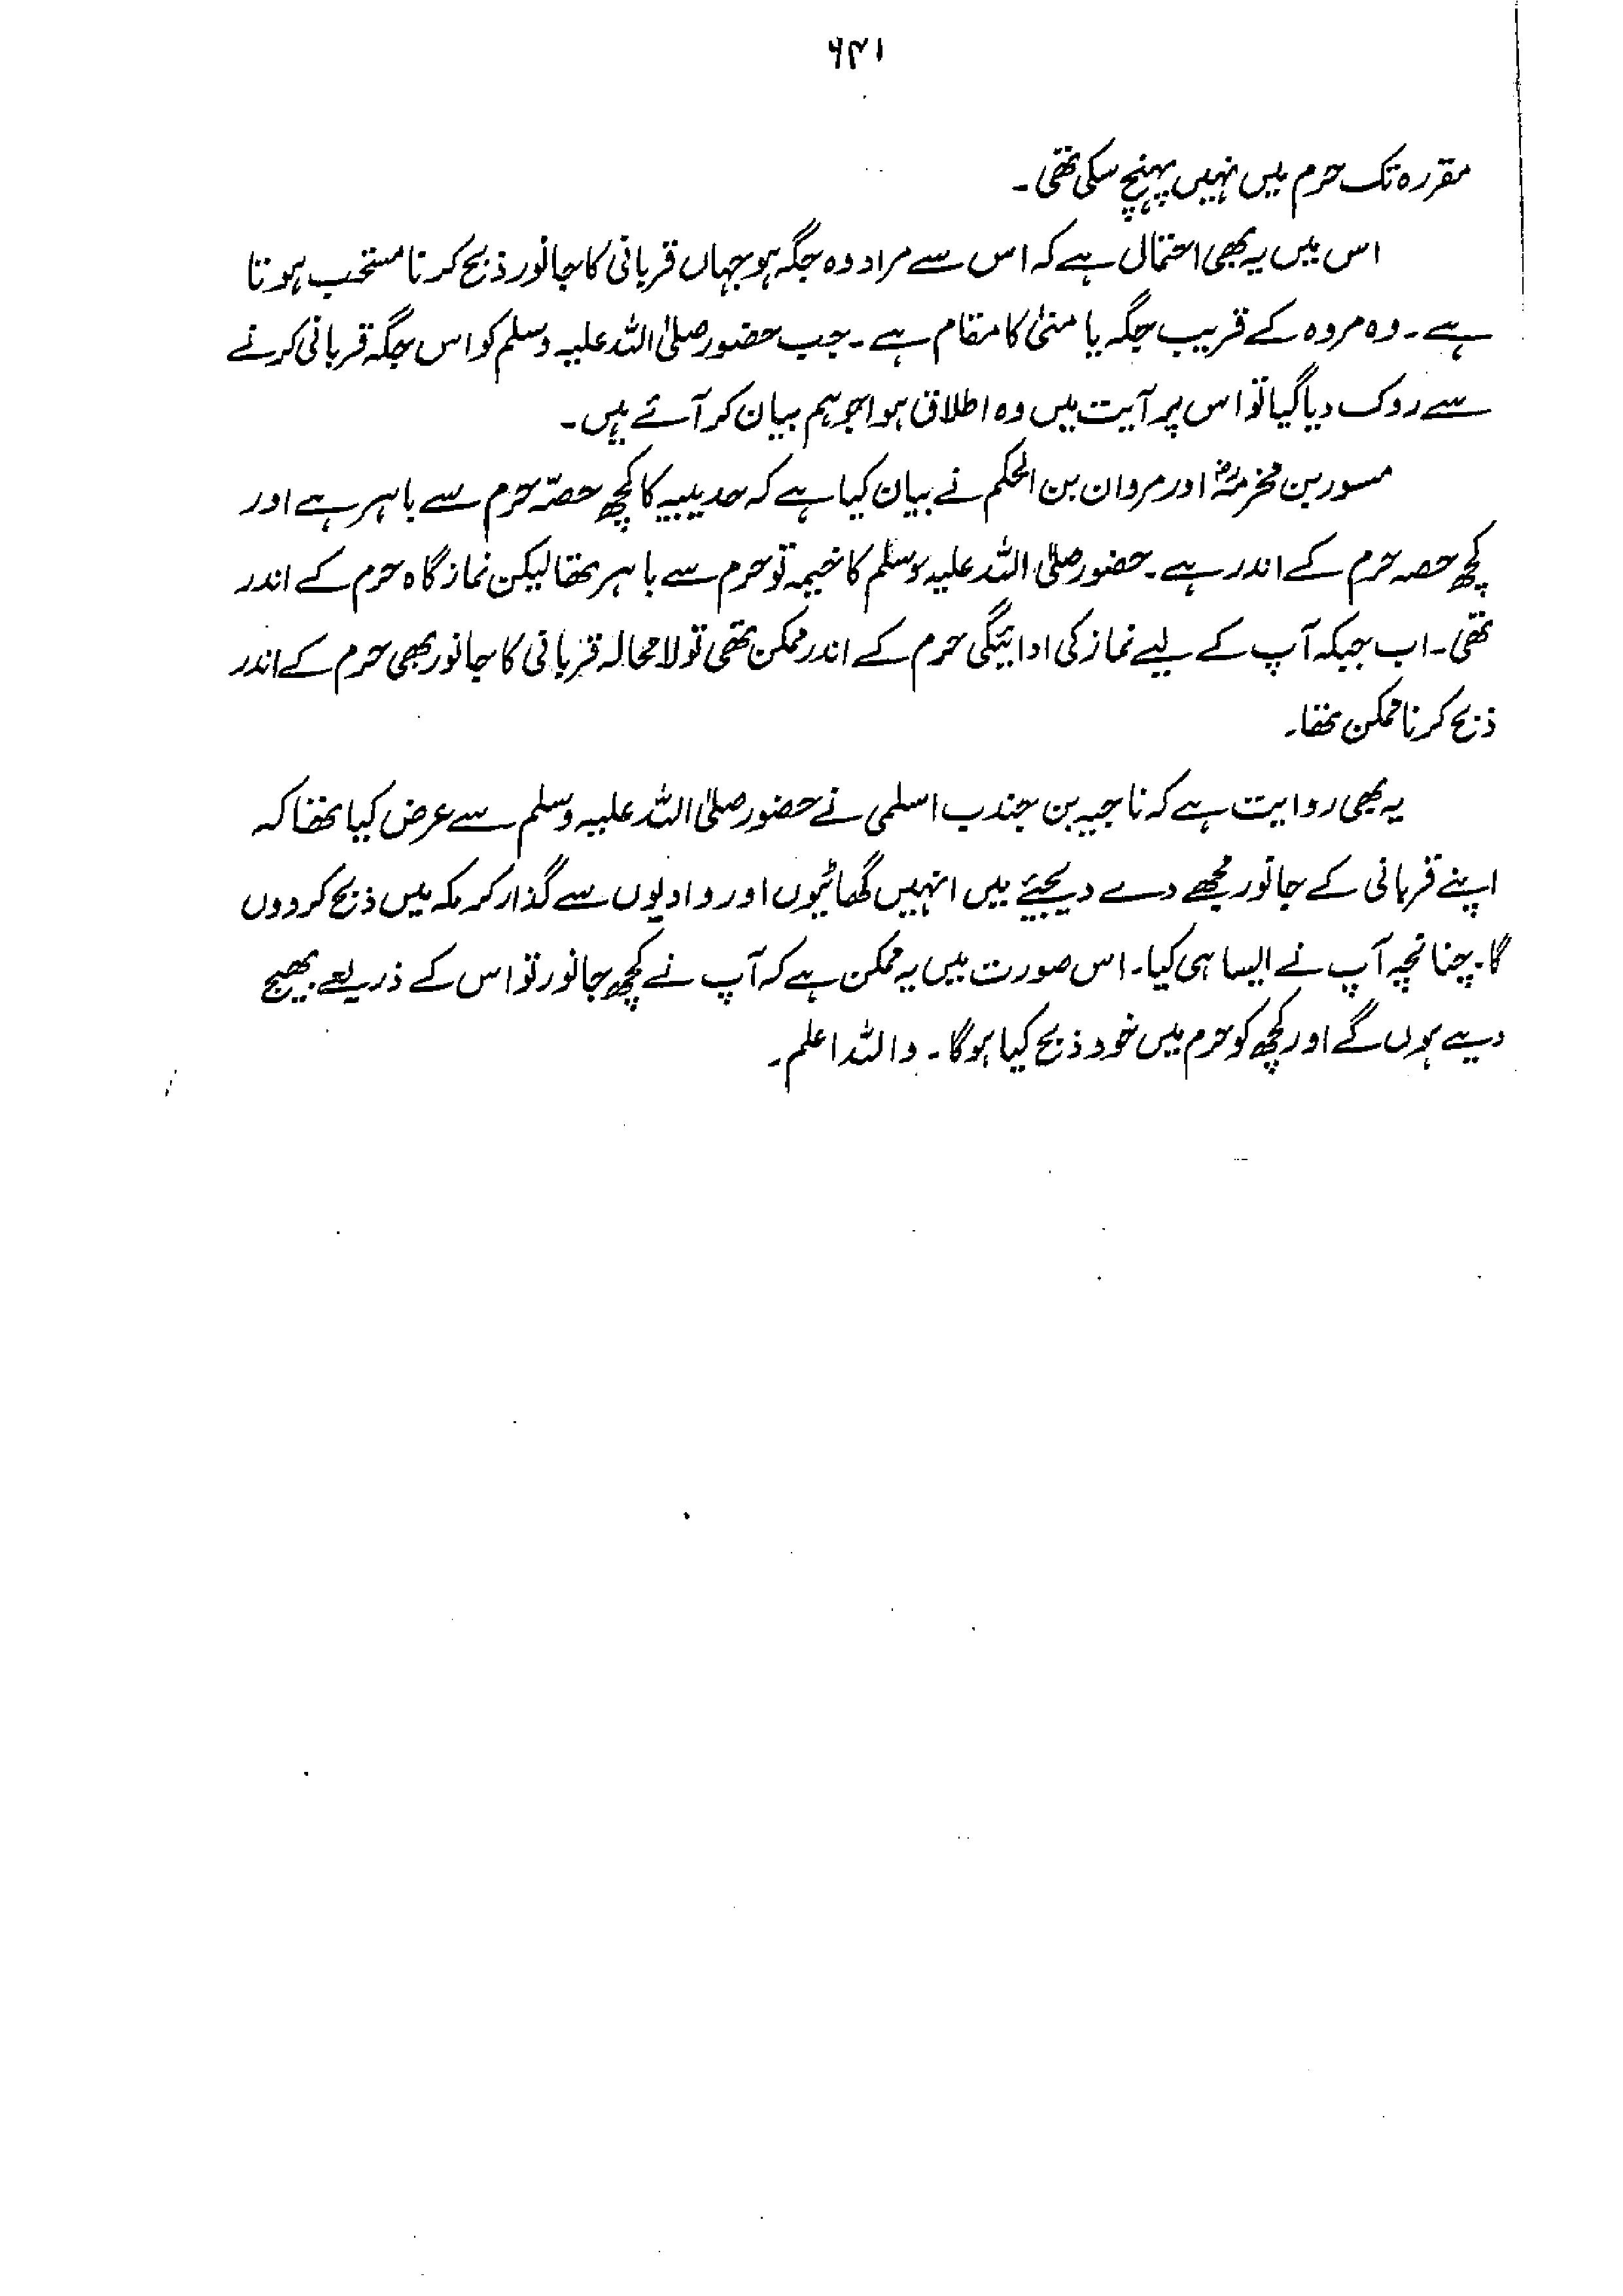 ۶۴۱
مقررہ تک حرم میں نہیں پہنچ سکی تھی۔
اس میں یہ بھی احتمال ہے کہ اس سے مراد وہ جگہ ہو جہاں قربانی کا جانور ذبح کرنا مستحب ہوتا
ہے۔ وہ مروہ کے قریب جگہ یا منیٰ کا مقام ہے۔ جب حضور صلی اللہ علیہ وسلم کو اس جگہ قربانی کرنے
سے روک دیا گیا تو اس پر آیت میں وہ اطلاق ہوا جو ہم بیان کر آئے ہیں۔
مسور بن مخرمہؓ اور مروان بن الحکم نے بیان کیا ہے کہ حدیبیہ کا کچھ حصّہ حرم سے باہر ہے اور
کچھ حصہ حرم کے اندر ہے۔ حضور صلی اللہ علیہ وسلم کا خیمہ تو حرم سے باہر تھا لیکن نماز گاہ حرم کے اندر
تھی۔ اب جبکہ آپ کے لیے نماز کی ادائیگی حرم کے اندر ممکن تھی تو لا محالہ قربانی کا جانور بھی حرم کے اندر
ذبح کرنا ممکن تھا۔
یہ بھی روایت ہے کہ ناجیہ بن جندب اسلمی نے حضور صلی اللہ علیہ وسلم سے عرض کیا تھا کہ
اپنے قربانی کے جانور مجھے دے دیجئے میں انہیں گھاٹیوں اور وادیوں سے گذار کر مکہ میں ذبح کر دوں
گا۔ چنانچہ آپ نے ایسا ہی کیا۔ اس صورت میں یہ ممکن ہے کہ آپ نے کچھ جانور تو اس کے ذریعے بھیج
دیے ہوں گے اور کچھ کو حرم میں خود ذبح کیا ہوگا۔ واللہ اعلم۔